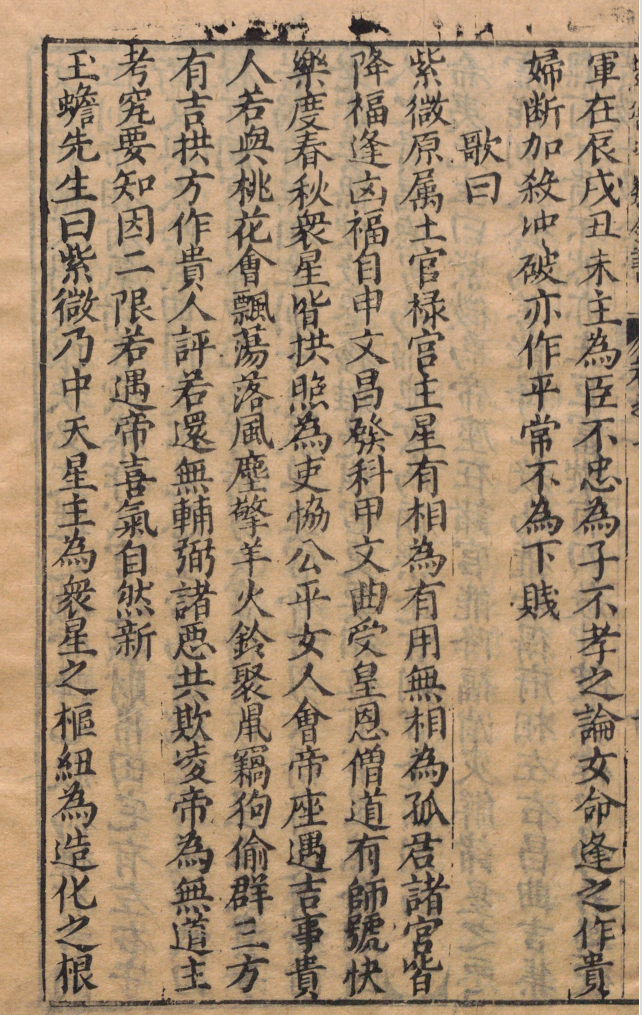 軍在辰戌丑未主為臣不忠為子不孝之論女命逢之作貴
婦断加殺冲破亦作平常不為下賤
歌曰
紫微原属土官禄宫主星有相為有用無相為孤君諸宫皆
降福逢凶福自申文昌發科甲文曲受皇恩僧道有師號快
樂度春秋衆星皆拱照為吏恊公平女人會帝座遇吉事貴
人若與桃花會飄蕩落風塵擎羊火鈴聚鼠竊狗偷群三方
有吉拱方作貴人評若還無輔弼諸惡共欺凌帝為無道主
考究要知因二限若遇帝喜氣自然新
玉蟾先生曰紫微乃中天星主為衆星之樞紐為造化之根